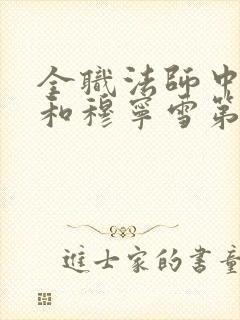 全職法師中
和穆寧雪第
進士家的書童